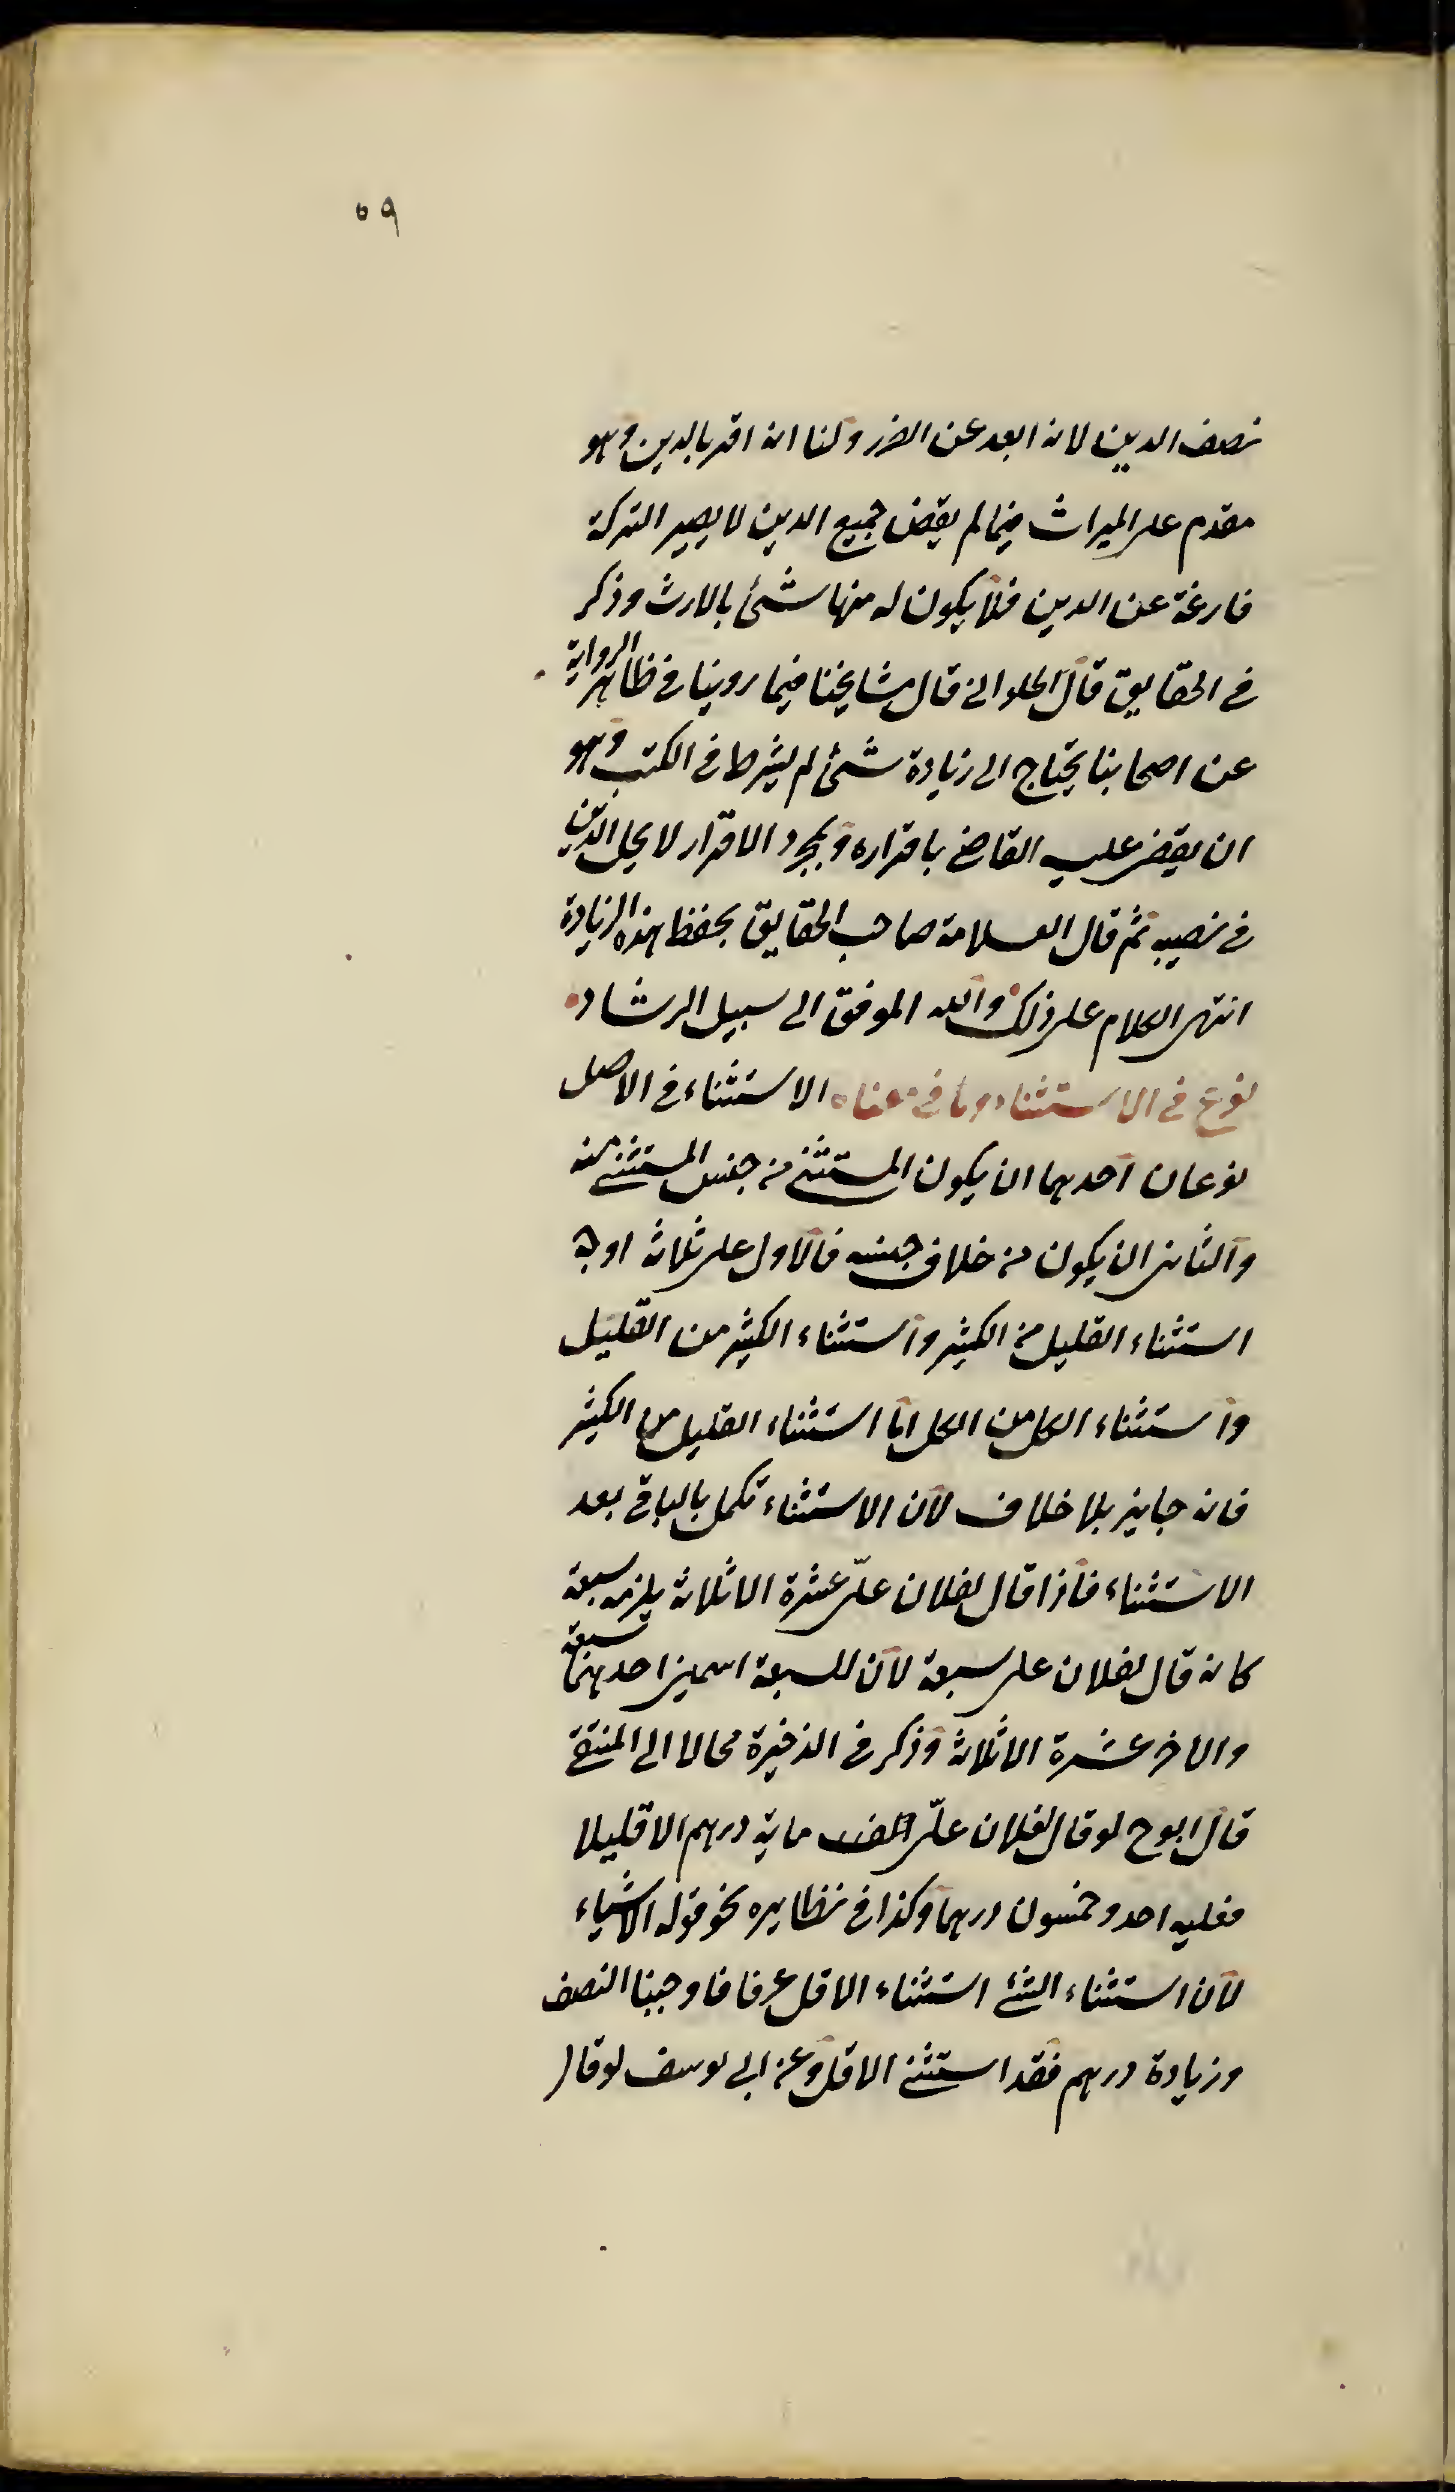 ٥٩
نصف الدين لانه ابعد عن الضرر ولنا انه اقر بالدين وهو
مقدم على الميراث فيما لم يقض جميع الدين لا يصير التركة
فارغة عن الدين فلا يكون له منها شئ بالارث وذكر
فى الحقايق قال الحلوانى قال مشايخنا فيما روينا فى ظاهر الرواية
عن اصحابنا يحتاج الى زيادة شئ لم يشرط فى الكتب وهو
ان يقضى عليه القاضى باقراره وبمجرد الاقرار لا يحل الدين
فى نصيبه ثم قال العلامة صاحب الحقايق يحفظ هذه الزيادة
انتهى الكلام على ذلك والله الموفق الى سبيل الرشاد
نوع فى الاستثناء وما فى معناه الاستثناء فى الاصل
نوعان احدهما ان يكون المستثنى من جنس المستثنى منه
والثانى ان يكون من خلاف جنسه فالاول على ثلاثة اوجه
استثناء القليل من الكثير واستثناء الكثير من القليل
واستثناء الكل من الكل اما استثناء القليل من الكثير
فانه جايز بلا خلاف لان الاستثناء تكلم بالباقى بعد
الاستثناء فاذا قال لفلان علىّ عشرة الا ثلاثة يلزمه سبعة
كانه قال لفلان على سبعة لان للسبعة اسمين احدهما سبعة
والاخر عشرة الا ثلاثة وذكر فى الذخيرة محالا الى المنتقى
قال ابو ح لو قال لفلان علىّ ماية درهم الا قليلا
فعليه احد وخمسون درهما وكذا فى نظايره نحو قوله الا شياء
لان استثناء الشئ استثناء الاقل عرفا فاوجبنا النصف
وزيادة درهم فقد استثنى الاقل وعن ابى يوسف لو قال